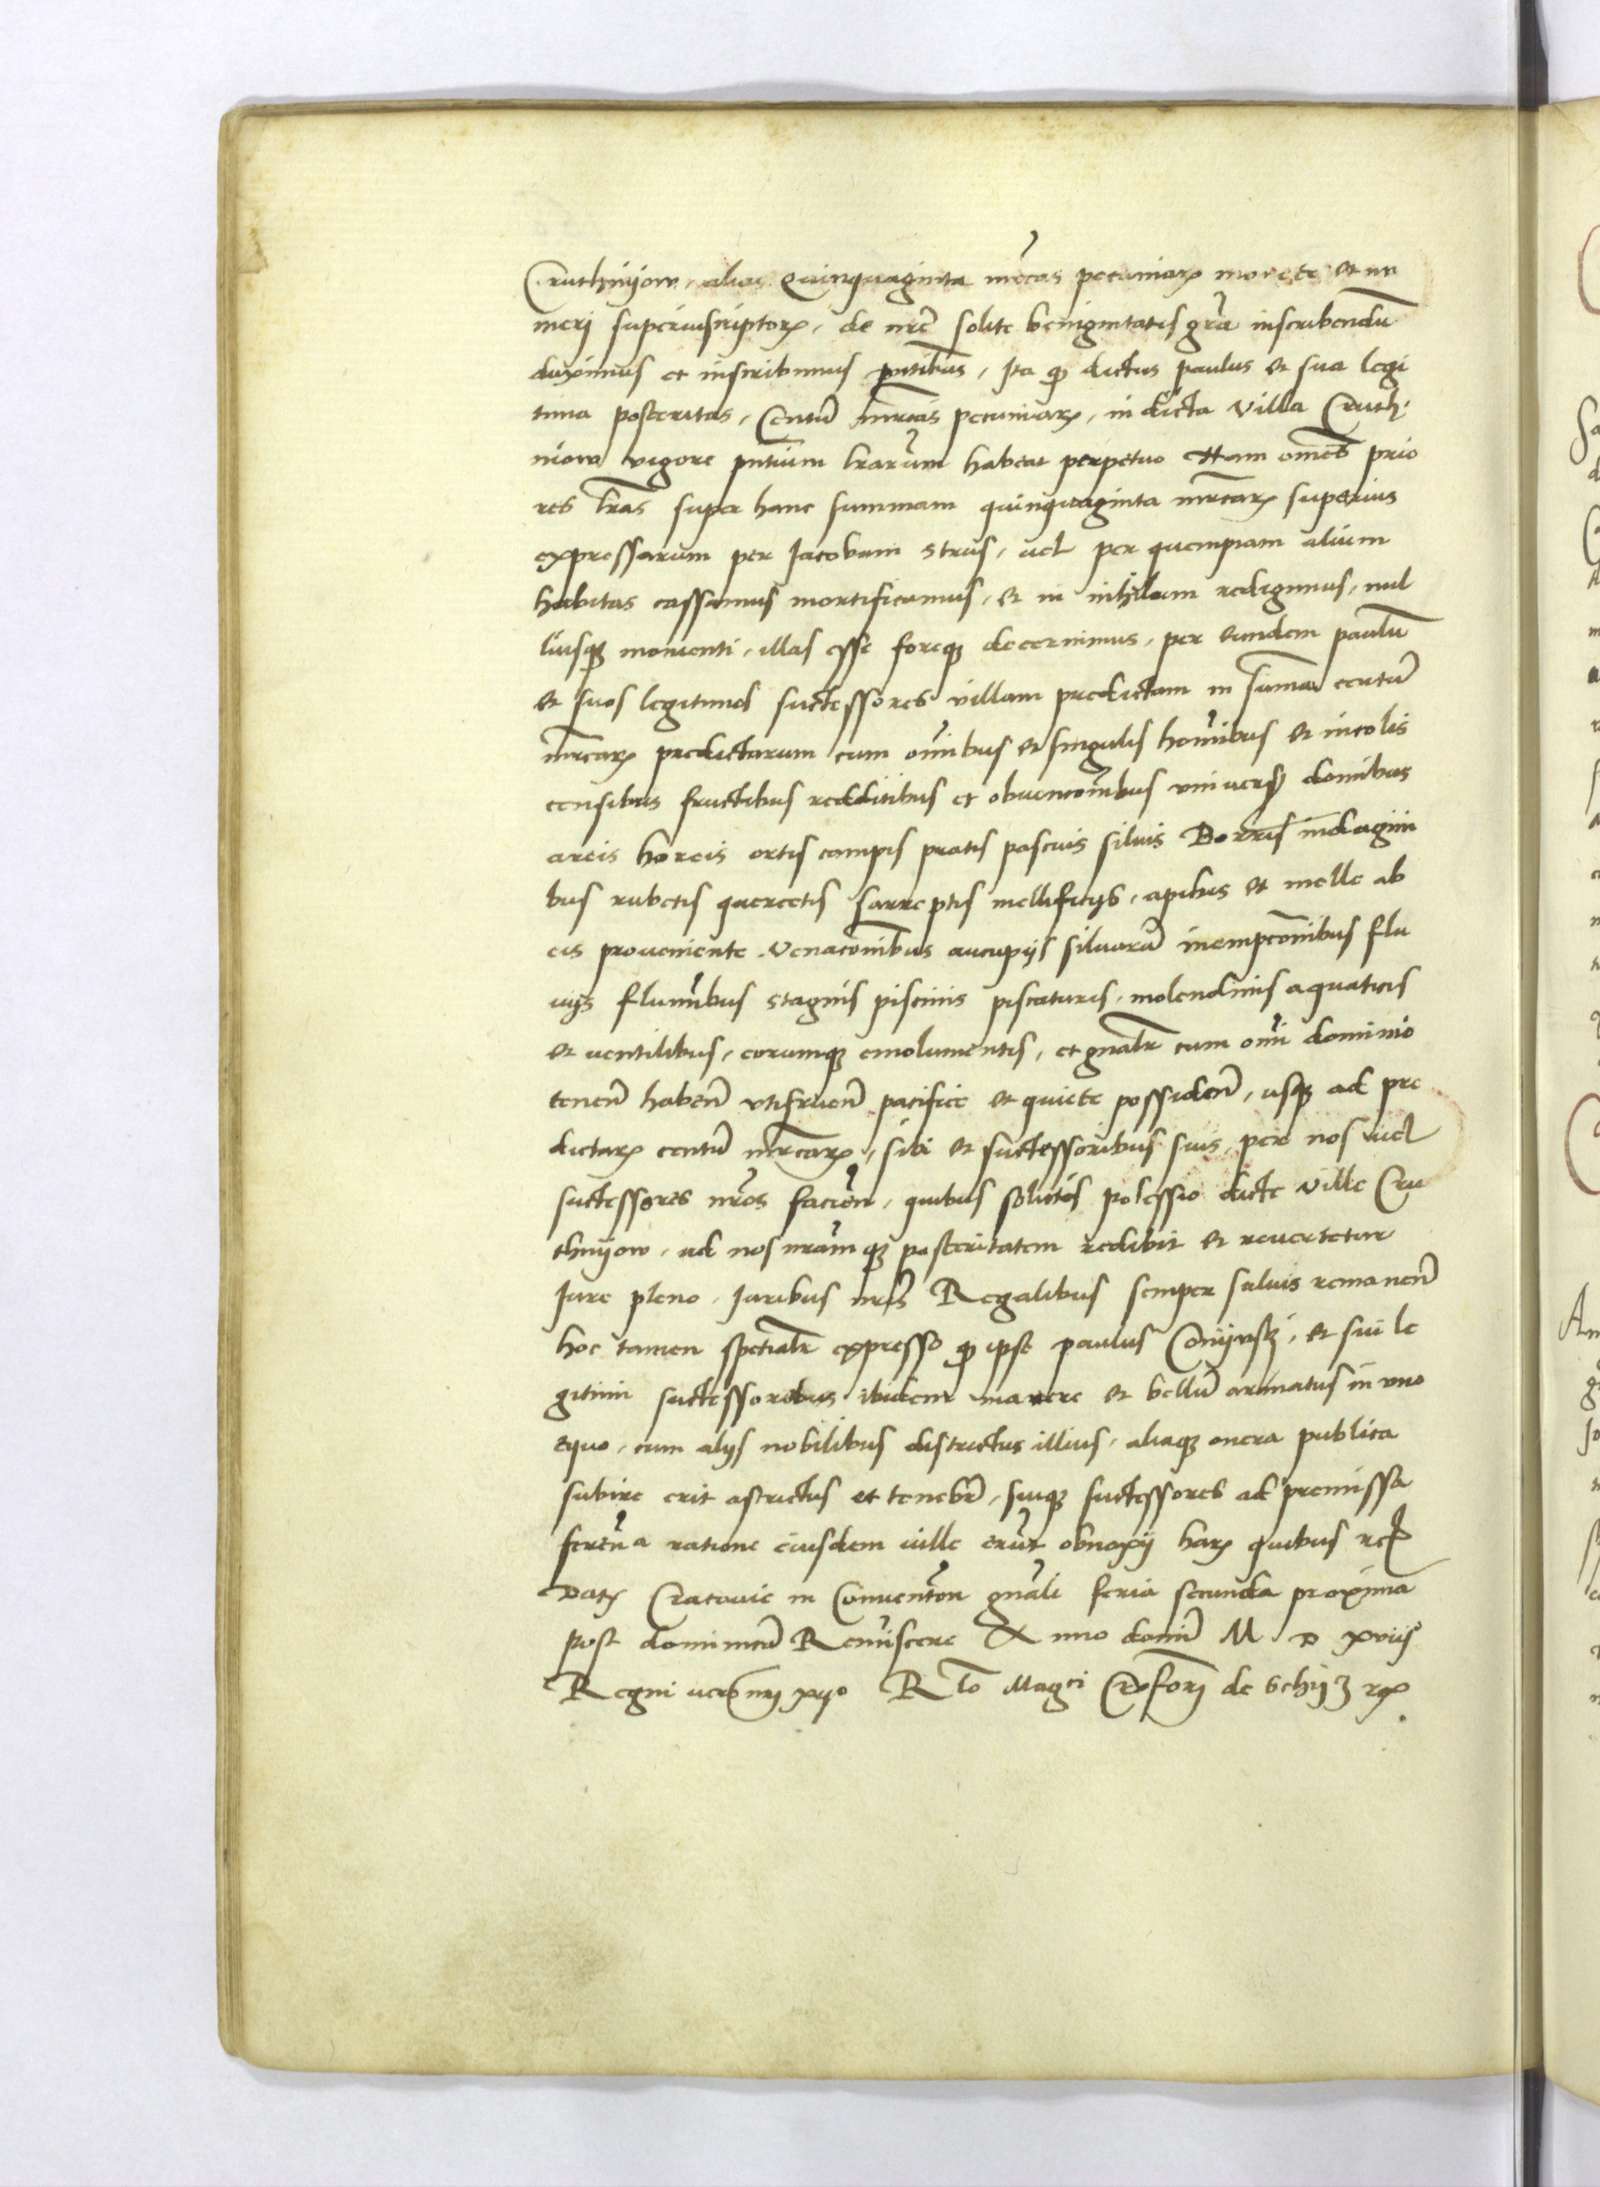 Cruthnyow, alias Quinquaginta mrcas pecuniarꝝ monete et nu
meri superiusscriptorꝝ, de nrẽ solite benignitatis grã inscribendũ
duximus et inscribimus pñtibus, Ita qꝫ dictus paulus et sua legi
tima posteritas, Centũ mrcas pecuniarꝝ, in dicta villa Cruth
niow vigore pñtium lrarum habeat perpetuo Nam omẽs prio
res lrãs super hanc summam quinquaginta mrcarꝝ superius
expressarum per Iacobum Strus, uel per quempiam alium
habitas cassamus mortificamus, et in nihilum redigimus, nul
liusqꝫ momenti, illas esse foreqꝫ decernimus, per eundem paulũ
et suos legitimos successores villam predictam in sũma centũ
mrcarꝝ predictarum cum oñibus et singulis hoñibus et incolis
censibus fructibus redditibus et obuencoñibus vniuersꝭ domibus
areis horeis ortis campis pratis pascuis siluis Borris indagini
bus rubetis quercetis sarreptis mellificijs, apibus et melle ab
eis proueniente. Venacoñibus aucupijs siluarũ inempcoñibus flu
uijs fluminibus stagnis piscinis piscaturis, molendinis aquaticis
et ventilibus, eorumqꝫ emolumentis, et gnalr̃ cum oñi dominio
tenen̄ haben̄ vtifruen̄ pacifice et quiete possiden̄, usqꝫ ad pre
dictarꝝ centũ mrcarꝝ, sibi et successoribus suis per nos uel
successores nrõs facien̄, quibus solutis possessio dicte ville Cru
thnyow, ad nos nrãm qꝫ posteritatem redibit et reuertetur
Iure pleno. Iuribus nrĩs Regalibus semper saluis remanen̄
hoc tamen spetialr̃ expresso qꝫ ipse paulus Conÿnskÿ, et sui le
gitimi successoribus ibidem manere et bellũ armatus in vno
equo, cum alijs nobilibus districtus illius, aliaqꝫ onera publica
subire erit astrictus et tenebr̃, suiqꝫ successores ad premissa
feren̄a ratione eiusdem uille erũt obnoxij harꝝ quibus rc̃
Datꝫ Cracouie in Conuentõn gñali feria secunda proxima
post dominicũ Reminiscere Anno domĩ M D xviiº
Regni uero nrĩ xiº Rlo Magci Crꝑfori de Schijdlo rc̃